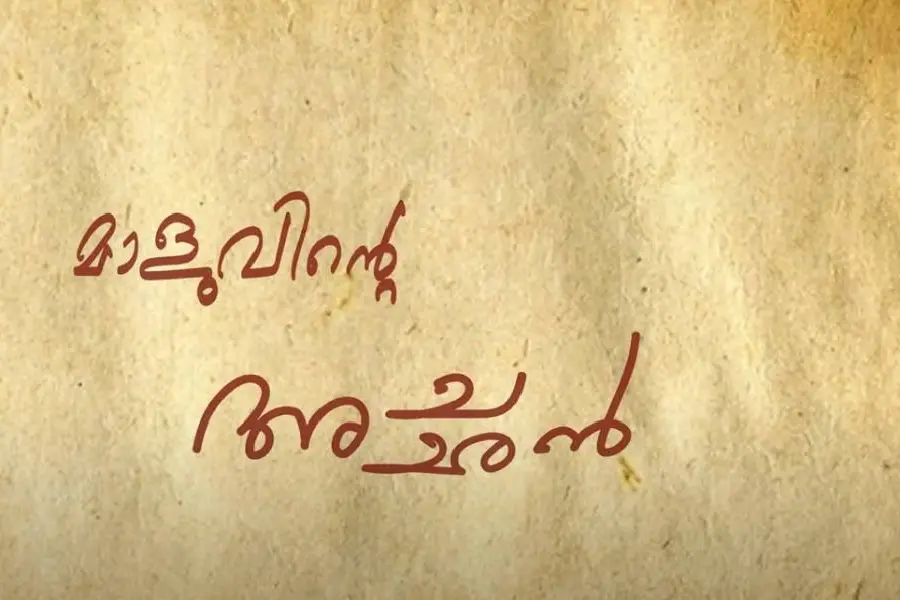 മാളുവിന്റെ
അച്ഛൻ